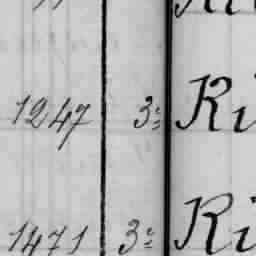 1247 3e Ri
1471 3e Ri